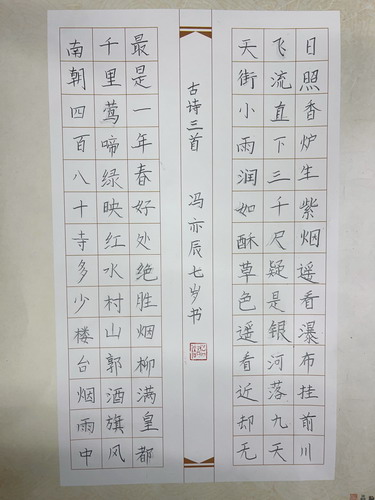 日照香炉生紫烟遥看瀑布挂前川
飞流直下三千尺疑是银河落九天
天街小雨润如酥草色遥看近却无
古诗三首 冯亦辰七岁书
最是一年春好处绝胜烟柳满皇都
千里莺啼绿映红水村山郭酒旗风
南朝四百八十寺多少楼台烟雨中